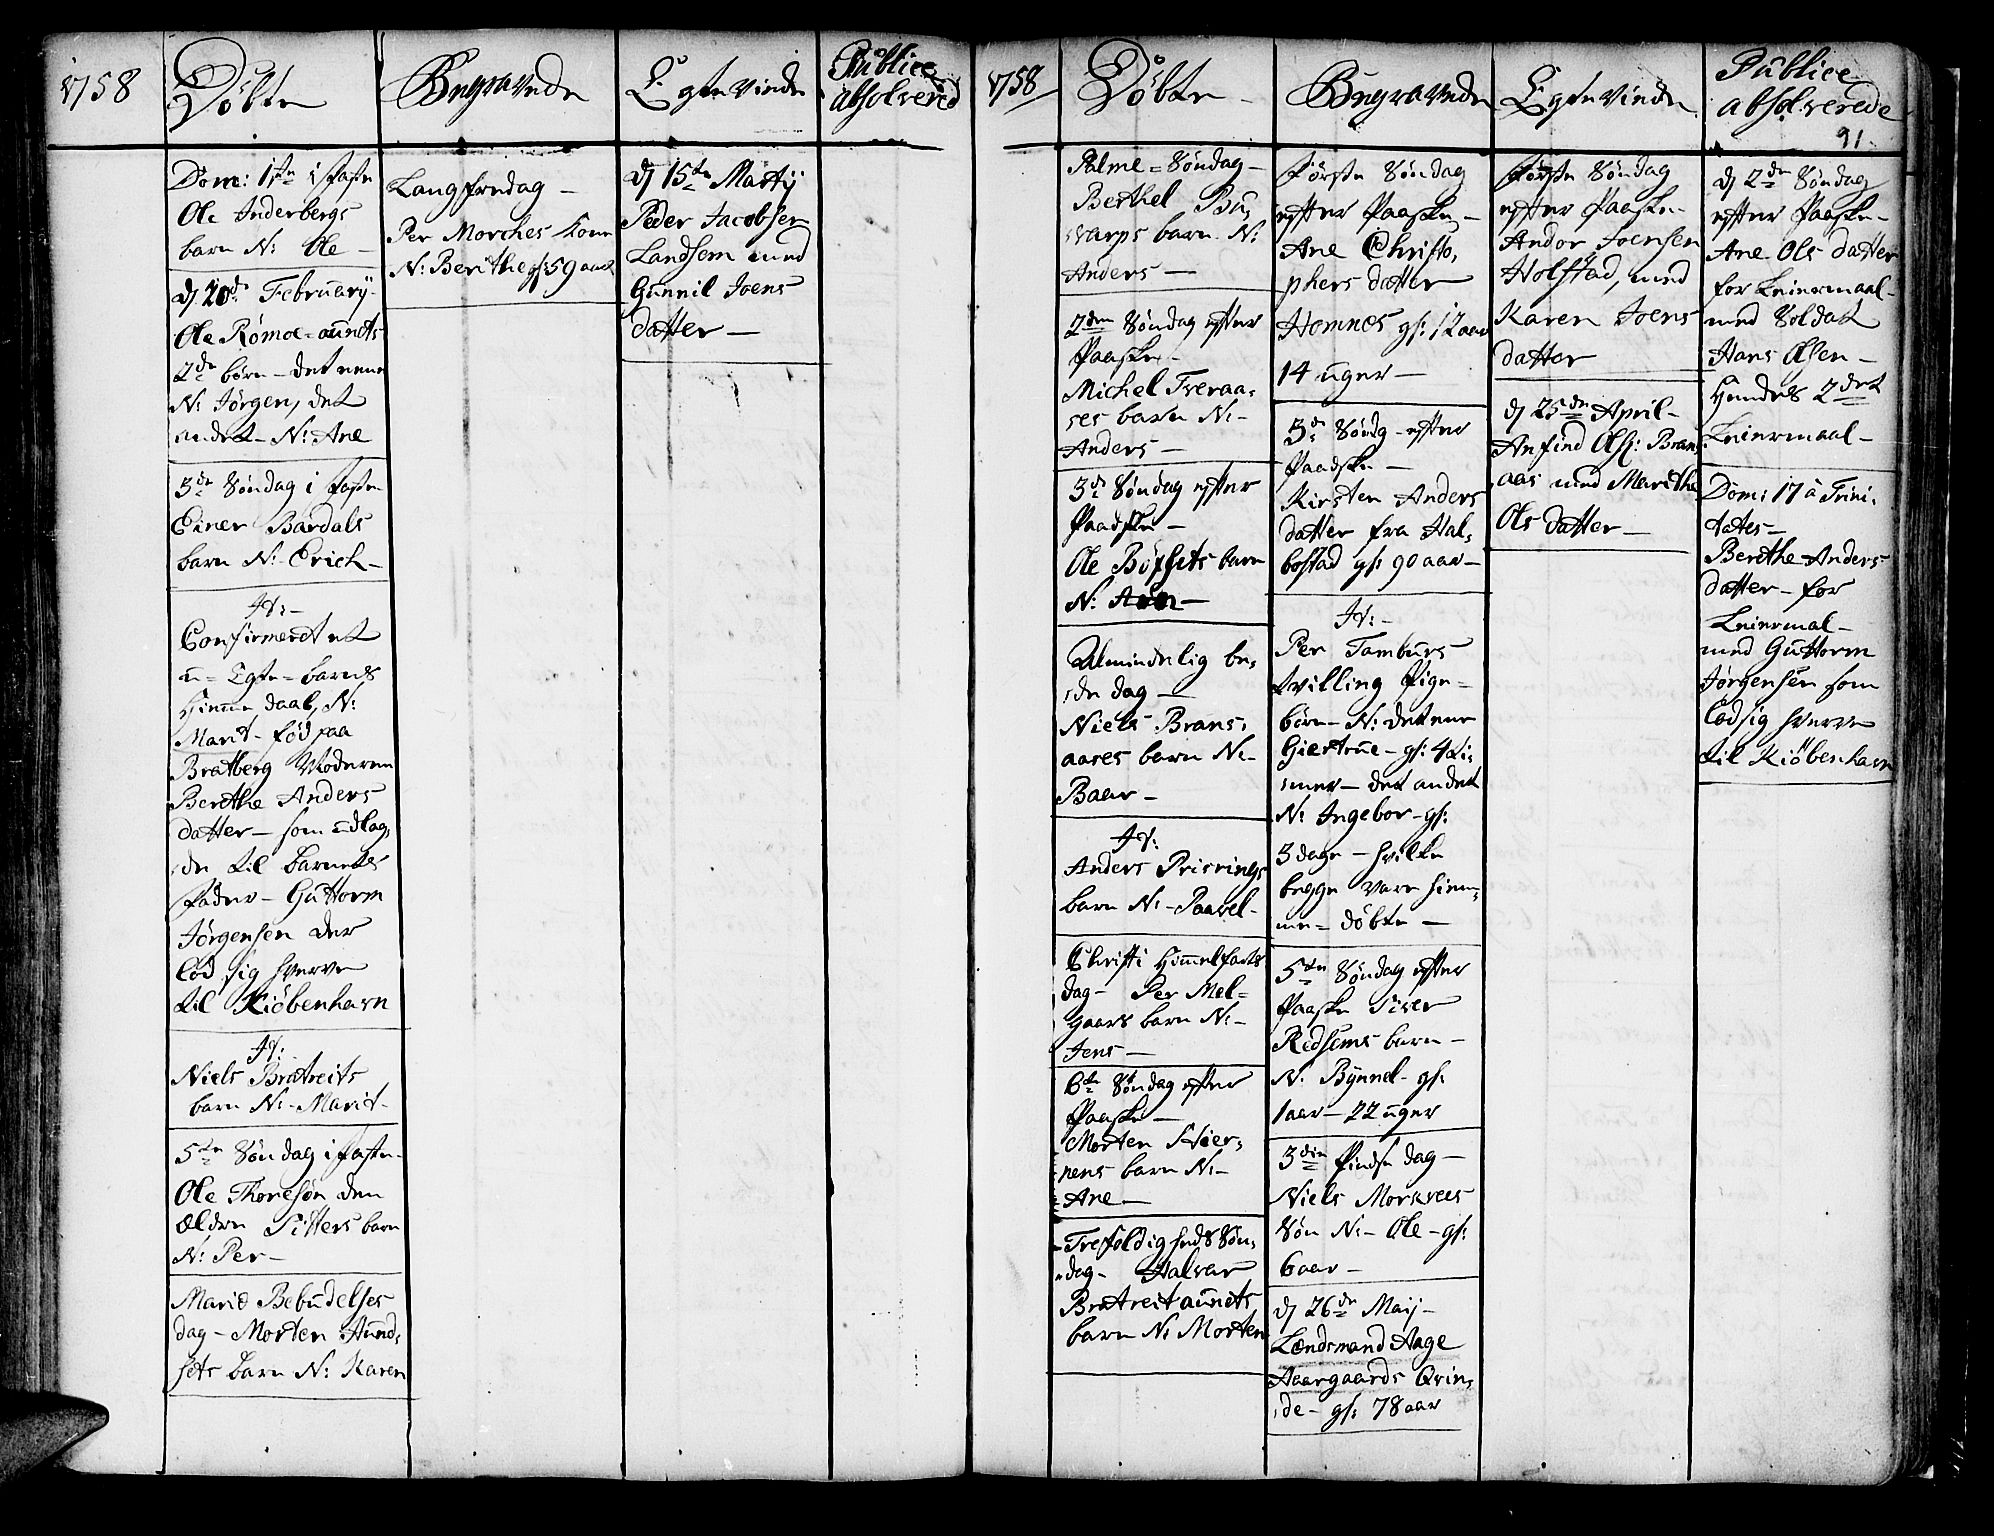 1758
Döbte
Begravede
Egteviede
Publice
absolvered
Dom: 1ste i faste
Ole Inderbergs
barn N: Ole –
dj 20de February
Ole Römoe-aunets
2de börn – det eene
N: Jörgen, det
andet – N: Ane
3de Söndag i faste
Einer Bardals
barn N: Erich –
It: –
Confirmeret et
u-Egte-barns
Hiemme daab, N:
Marit – fød paa
Bratberg Moderen
Berethe Anders
datter – som udlag-
de til barnets
fader – Guttorm
Jörgensen der
lod sig hverve
til Kiöbenhavn
It:
Niels Bratreits
barn N: – Marit –
5te Söndag i faste –
Ole Thoresön den
ældre Sitters barn
N: Per –
Mariæ Bebudelses
dag – Morten Aund-
sets barn N: Karen
Langfredag –
Per Morches kone
N: Berithe gl: 59 aar
dj 15de Martij
Peder Jacobsen
Landsem med
Gunnil Joens
datter –
1758
Döbte –
Begravede
Egteviede
Publice
absolverede
91
Palme-Söndag –
Berthel Bu-
varps barn N:
Anders –
2den Söndag efter
Paaske –
Michel Tveraa-
ses barn N: –
Anders –
3de Söndag efter
Paaske –
Ole Böfsets barn
N: –
Almindelig be-
de dag –
Niels Brans-
aases barn N: –
Baar –
It:
Anders Prisrings
barn N: – Paavel –
Christi Himmelfarts
dag – Per Mel-
gaars barn N: –
Jens –
6te Söndag efter
Paaske –
Morten Stier-
nens barn N: –
Ane –
Trefoldigheds Sön-
dag – Halvar
Bratreitaunets
barn N: Morten
förste Söndag
efter Paaske –
Ane Christo-
phers datter
Homnes gl: 12 aar
14 uger –
3de Söndg – efter
Paaske –
Kirsten Anders
datter fra Hal-
bostad gl: 90 aar –
It: –
Per Tamburs
tvilling Pige –
börn – N: det eene
Giertrue – gl: 4 ti-
mer – det andet
N: Ingebor – gl:
3 dage – hvilke
begge vare hiem-
me-döbte –
5te Söndag efter
Paaske Siver
Redsems barn –
N: Bynnel – gl:
1 aar – 22 uger
3die Pindse dag –
Niels Morkvees
Sön N: – Ole – gl:
6 aar –
dj 26de Maij –
Lændsmand Aage
Aargaards Qvin-
de – gl: 78 aar
förste Söndag
efter Paaske –
Andor Joensen
Holstad, med
Karen Joens
datter
dj 25de April –
Anfind Ols: Brans-
aas med Marithe
Ols datter –
dj 2de Söndag
efter Paaske –
Ane Ols datter
for Leiermaal –
med Soldat
Hans Olsen –
Hendes 2det
Leiermaal –
Dom: 17 a Trini-
tates –
Berethe Anders
datter – for
Leiermal –
med Guttorm
Jörgensen som
lod sig hverve
til Kiöbenhavn